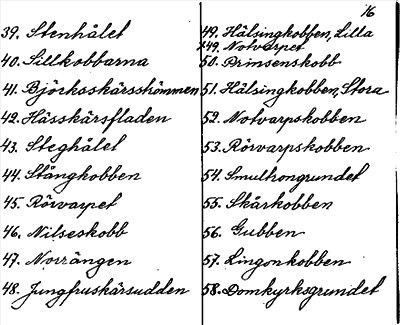 16
39. Stenhålet
40. Sillkobbarna
41. Björkoskärsströmmen
42. Hässkärsfladen
43. Steghålet
44. Stångkobben
45. Rörvarpet
46. Nilseskobb
47. Norrängen
48. Jungfruskärsudden
49. Hälsingkobben, Lilla
x49. Notvarpet
50. Prinsenskobb
51. Hälsingkobben, Stora
52. Notvarpskobben
53. Rörvarpskobben
54. Smultrongrundet
55. Skärkobben
56. Gubben
57. Lingonkobben
58. Domkyrksgrundet